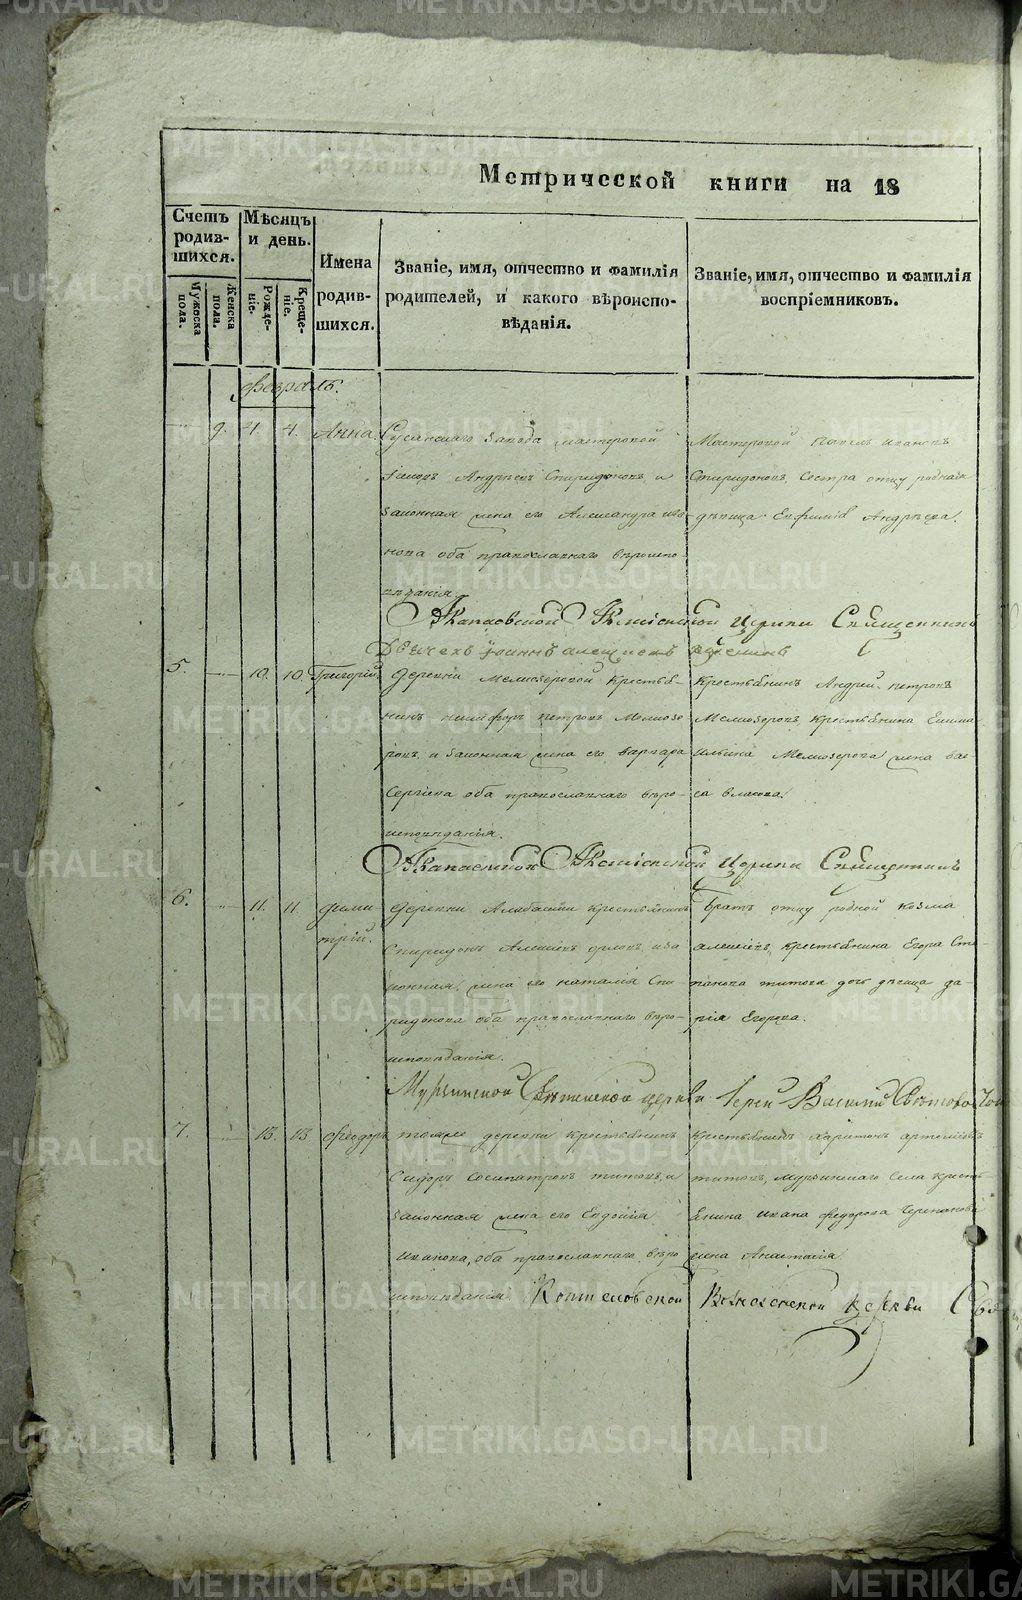 Метрической книги на 18
Счетъ родив-шихся.
Мужеска пола.
Женска пола.
Мѣсяцъ и день.
Рожде-ніе.
Креще-ніе.
Имена родив-шихся.
Званіе, имя, отчество и фамилія
родителей, и какого вѣроиспо-
вѣданія.
Званіе, имя, отчество и фамилія
воспріемниковъ.
Февраль.
9. 4. 4. Анна.
Сусанскаго завода мастеровой
Андреевъ Спиридоновъ и
законная жена его Александра Ива-
нова оба православнаго вѣроиспо-
вѣданія.
Мастеровой Павелъ Ивановъ
Спиридоновъ, Сестра отцу родная
дѣвица Евфимія Андрѣева.
церкви Священникъ
Іоаннъ
5. 10. 10. Григорій.
Деревни Мелкозеровой крестья-
нинъ Никифоръ Петровъ Мелкозе-
ровъ и законная жена его Варвара
Сергіева оба православнаго вѣро-
исповѣданія.
Крестьянинъ Андрей Петровъ
Мелкозеровъ, крестьянина
Ильина Мелкозерова жена Вас-
са Власова.
церкви Священникъ
6. 11. 11. Дими-
трій.
Деревни крестьянинъ
Спиридонъ Алексіевъ Орловъ и за-
конная жена его Наталія Спи-
ридонова оба православнаго вѣро-
исповѣданія.
Братъ отцу родной Козма
Алексіевъ, крестьянина Егора Сте-
панова Титова дочь дѣвица Да-
рія Егорова.
Мурзинской Срѣтенской церкви Іерей Василій
7. 13. 13. Феодоръ
тояже деревни крестьянинъ
Сидоръ Сосипатровъ Титовъ, и
законная жена его Евдокія
Иванова, оба православнаго вѣро
исповѣданія.
Крестьянинъ Харитонъ Артеміевъ
Титовъ, Мурзинскаго села кресть-
янина Ивана Федорова Черепанова
жена Анастасія
Коптеловской Вознесенской церкви Свя
METRIKI.GASO-URAL.RU